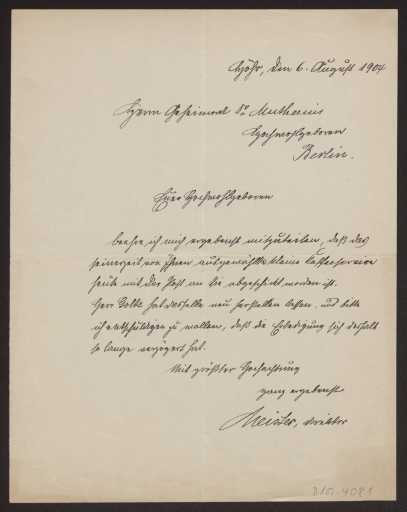 Wyhr, den 6. August 1904
Herrn Geheimrat Dr. Muthesius
Hochwohlgeboren
Berlin.
Euer Hochwohlgeboren
beehre ich mich ergebenst mitzuteilen, daß das
seinerzeit von Ihnen ausgewählte kleine Kaffeeservice
heute mit der Post an Sie abgeschickt worden ist.
Herr hat dasselbe neu herstellen lassen, und bitte
ich entschuldigen zu wollen, daß die Erledigung sich deshalb
so lange verzögert hat.
Mit größter Hochachtung
ganz ergebenst
Meister, Direktor